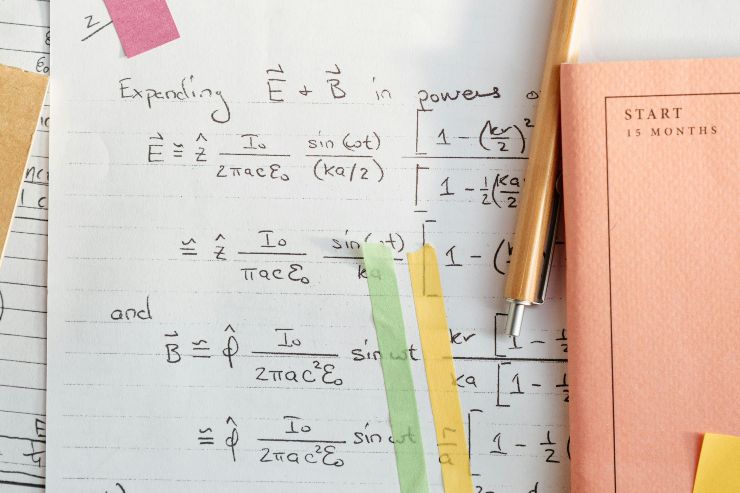 2
Expending E⃗ + B⃗ in powers
E⃗ ≅ ẑ I₀/(2πacε₀) sin(ωt)/(ka/2) [1 - (kr/2)²/[1 - ½(ka/2
≅ ẑ I₀/(πacε₀) sin(ωt)/ka [1 - (
and
B⃗ ≅ φ̂ I₀/(2πac²ε₀) sin ωt kr [1 - ½/ka [1 - ½
≅ φ̂ I₀/(2πac²ε₀) sin ωt r/a [1 - ½(
START
15 MONTHS